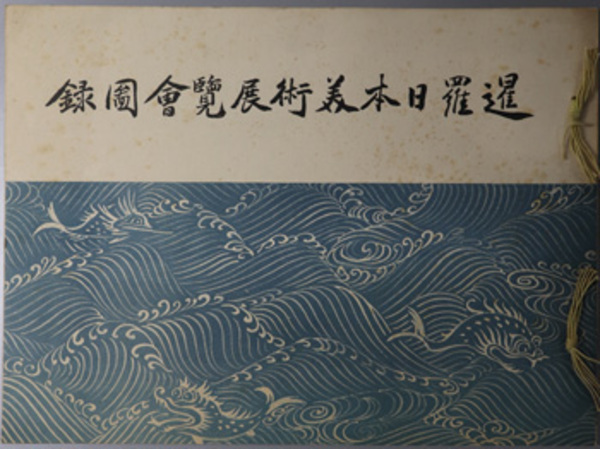 暹羅日本美術展覽會圖録